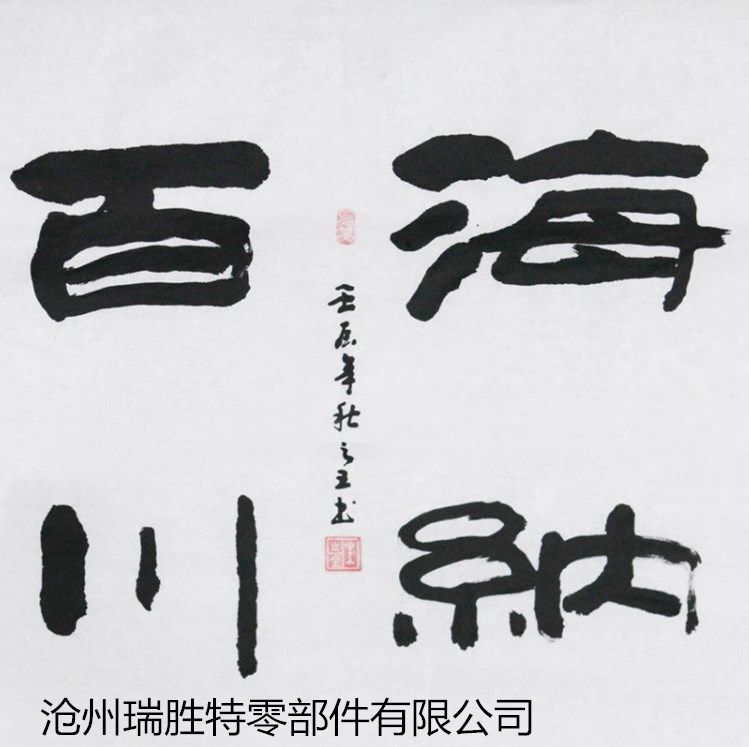 海納
百川
壬辰年秋
沧州瑞胜特零部件有限公司